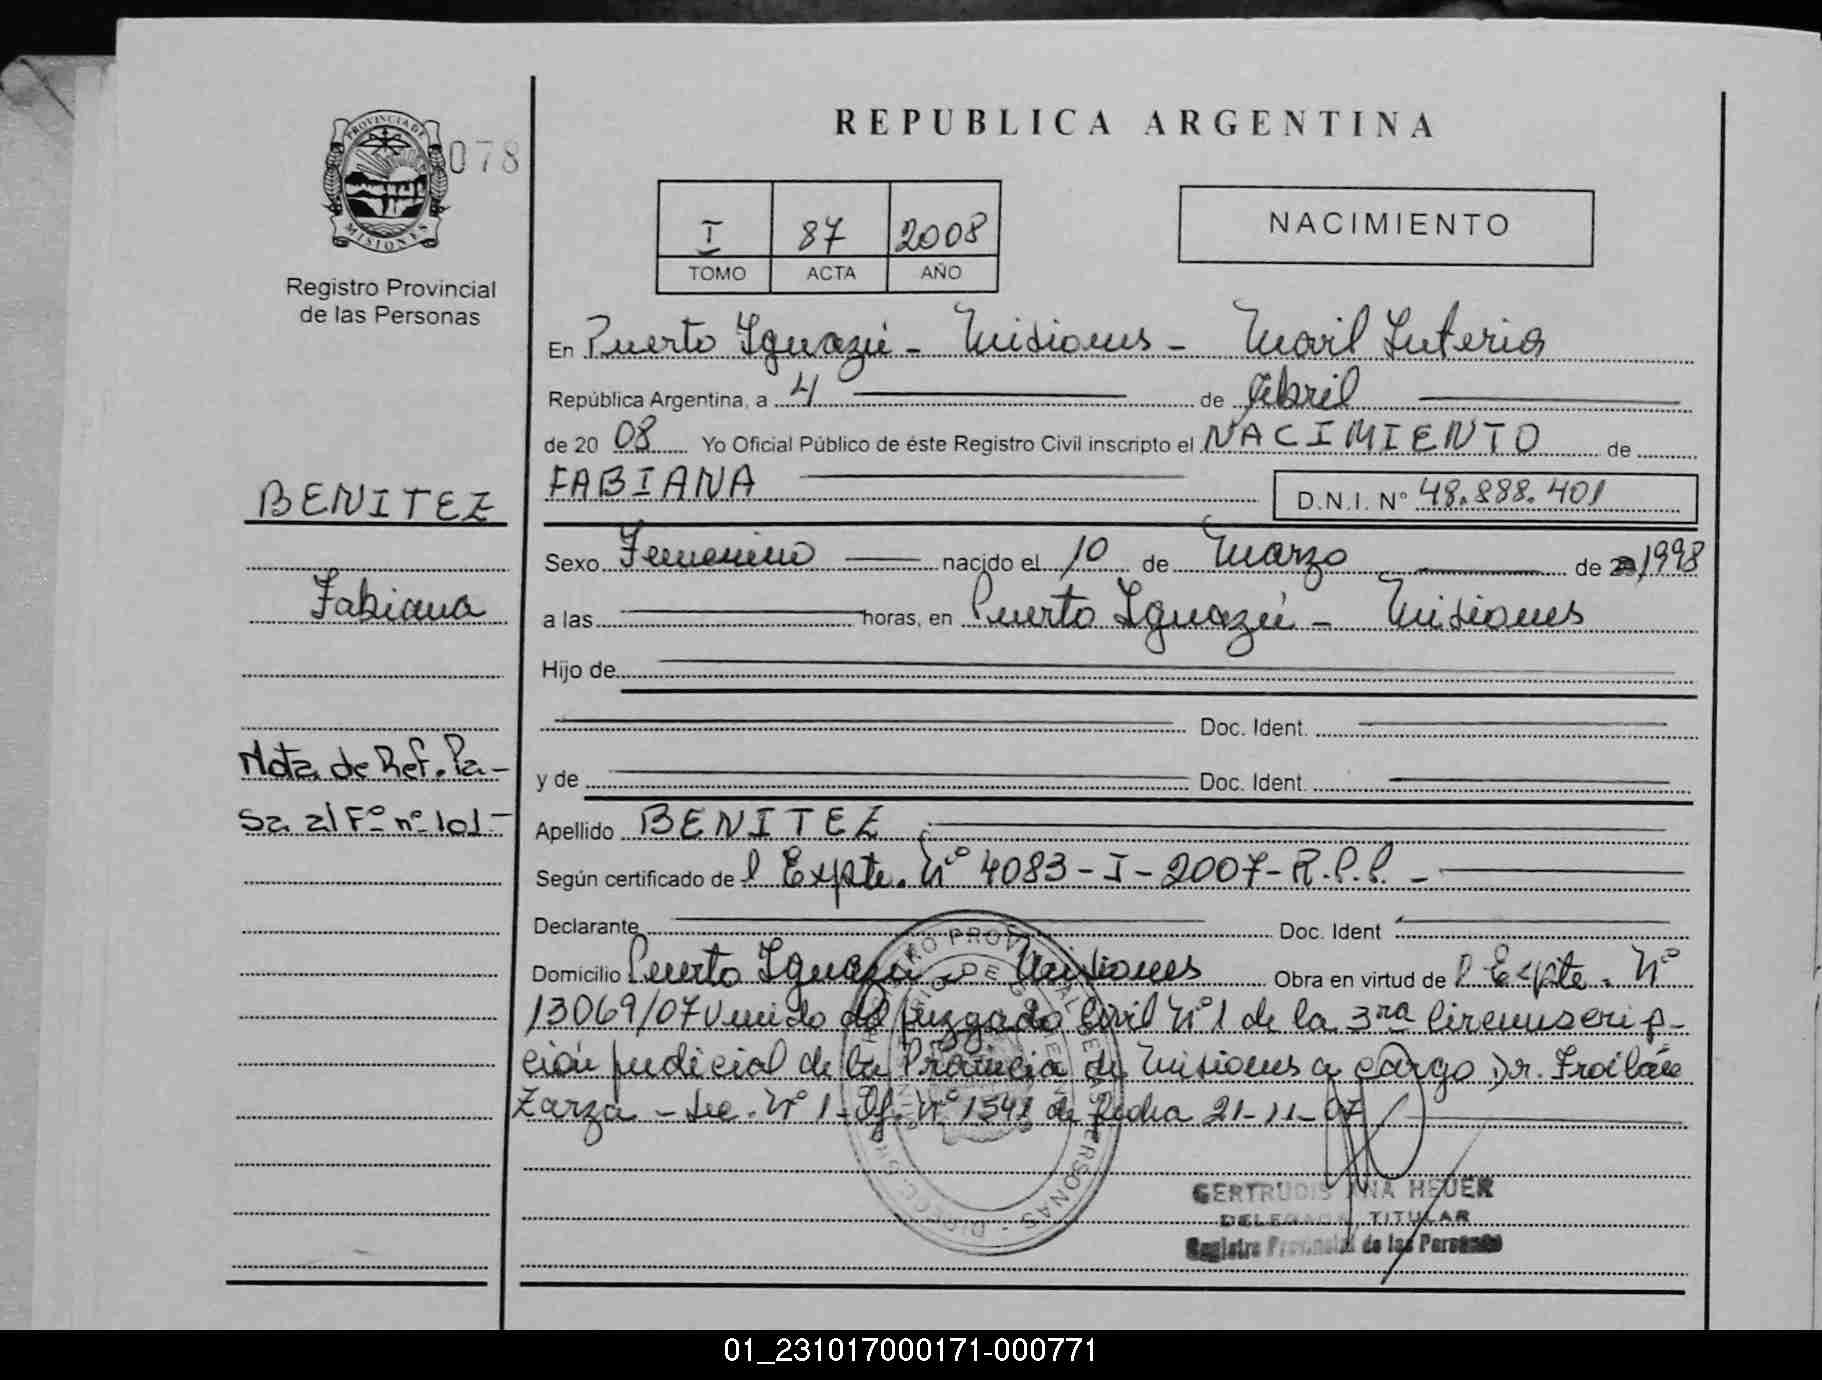 REPUBLICA ARGENTINA
PROVINCIA DE MISIONES
078
Registro Provincial
de las Personas
I 87 2008
TOMO ACTA AÑO
NACIMIENTO
En Puerto Iguazú - Misiones - Movil Interior
República Argentina, a 4 de Abril
de 20 08 Yo Oficial Público de éste Registro Civil inscripto el NACIMIENTO de
FABIANA D.N.I. N° 48.888.401
BENITEZ
Sexo Femenino nacido el 10 de Marzo de 1998
Fabiana
a las horas, en Puerto Iguazú - Misiones
Hijo de
Doc. Ident.
Nota de Ref. Pa-
y de Doc. Ident.
sa al Fº nº 101-
Apellido BENITEZ
Según certificado de l Expte. Nº 4083-I-2007-R.P.P. -
Declarante Doc. Ident
Domicilio Puerto Iguazú - Misiones Obra en virtud de l Expte. Nº
13069/07 Venido del Juzgado Civil Nº 1 de la 3ra Circunscrip-
ción Judicial de la Provincia de Misiones a cargo Dr. Froilán
Zarza - Sec. Nº 1 - Of. Nº 1541 de fecha 21-11-07
GERTRUDIS ANA HEUER
DELEGADA TITULAR
Registro Provincial de las Personas
01_231017000171-000771